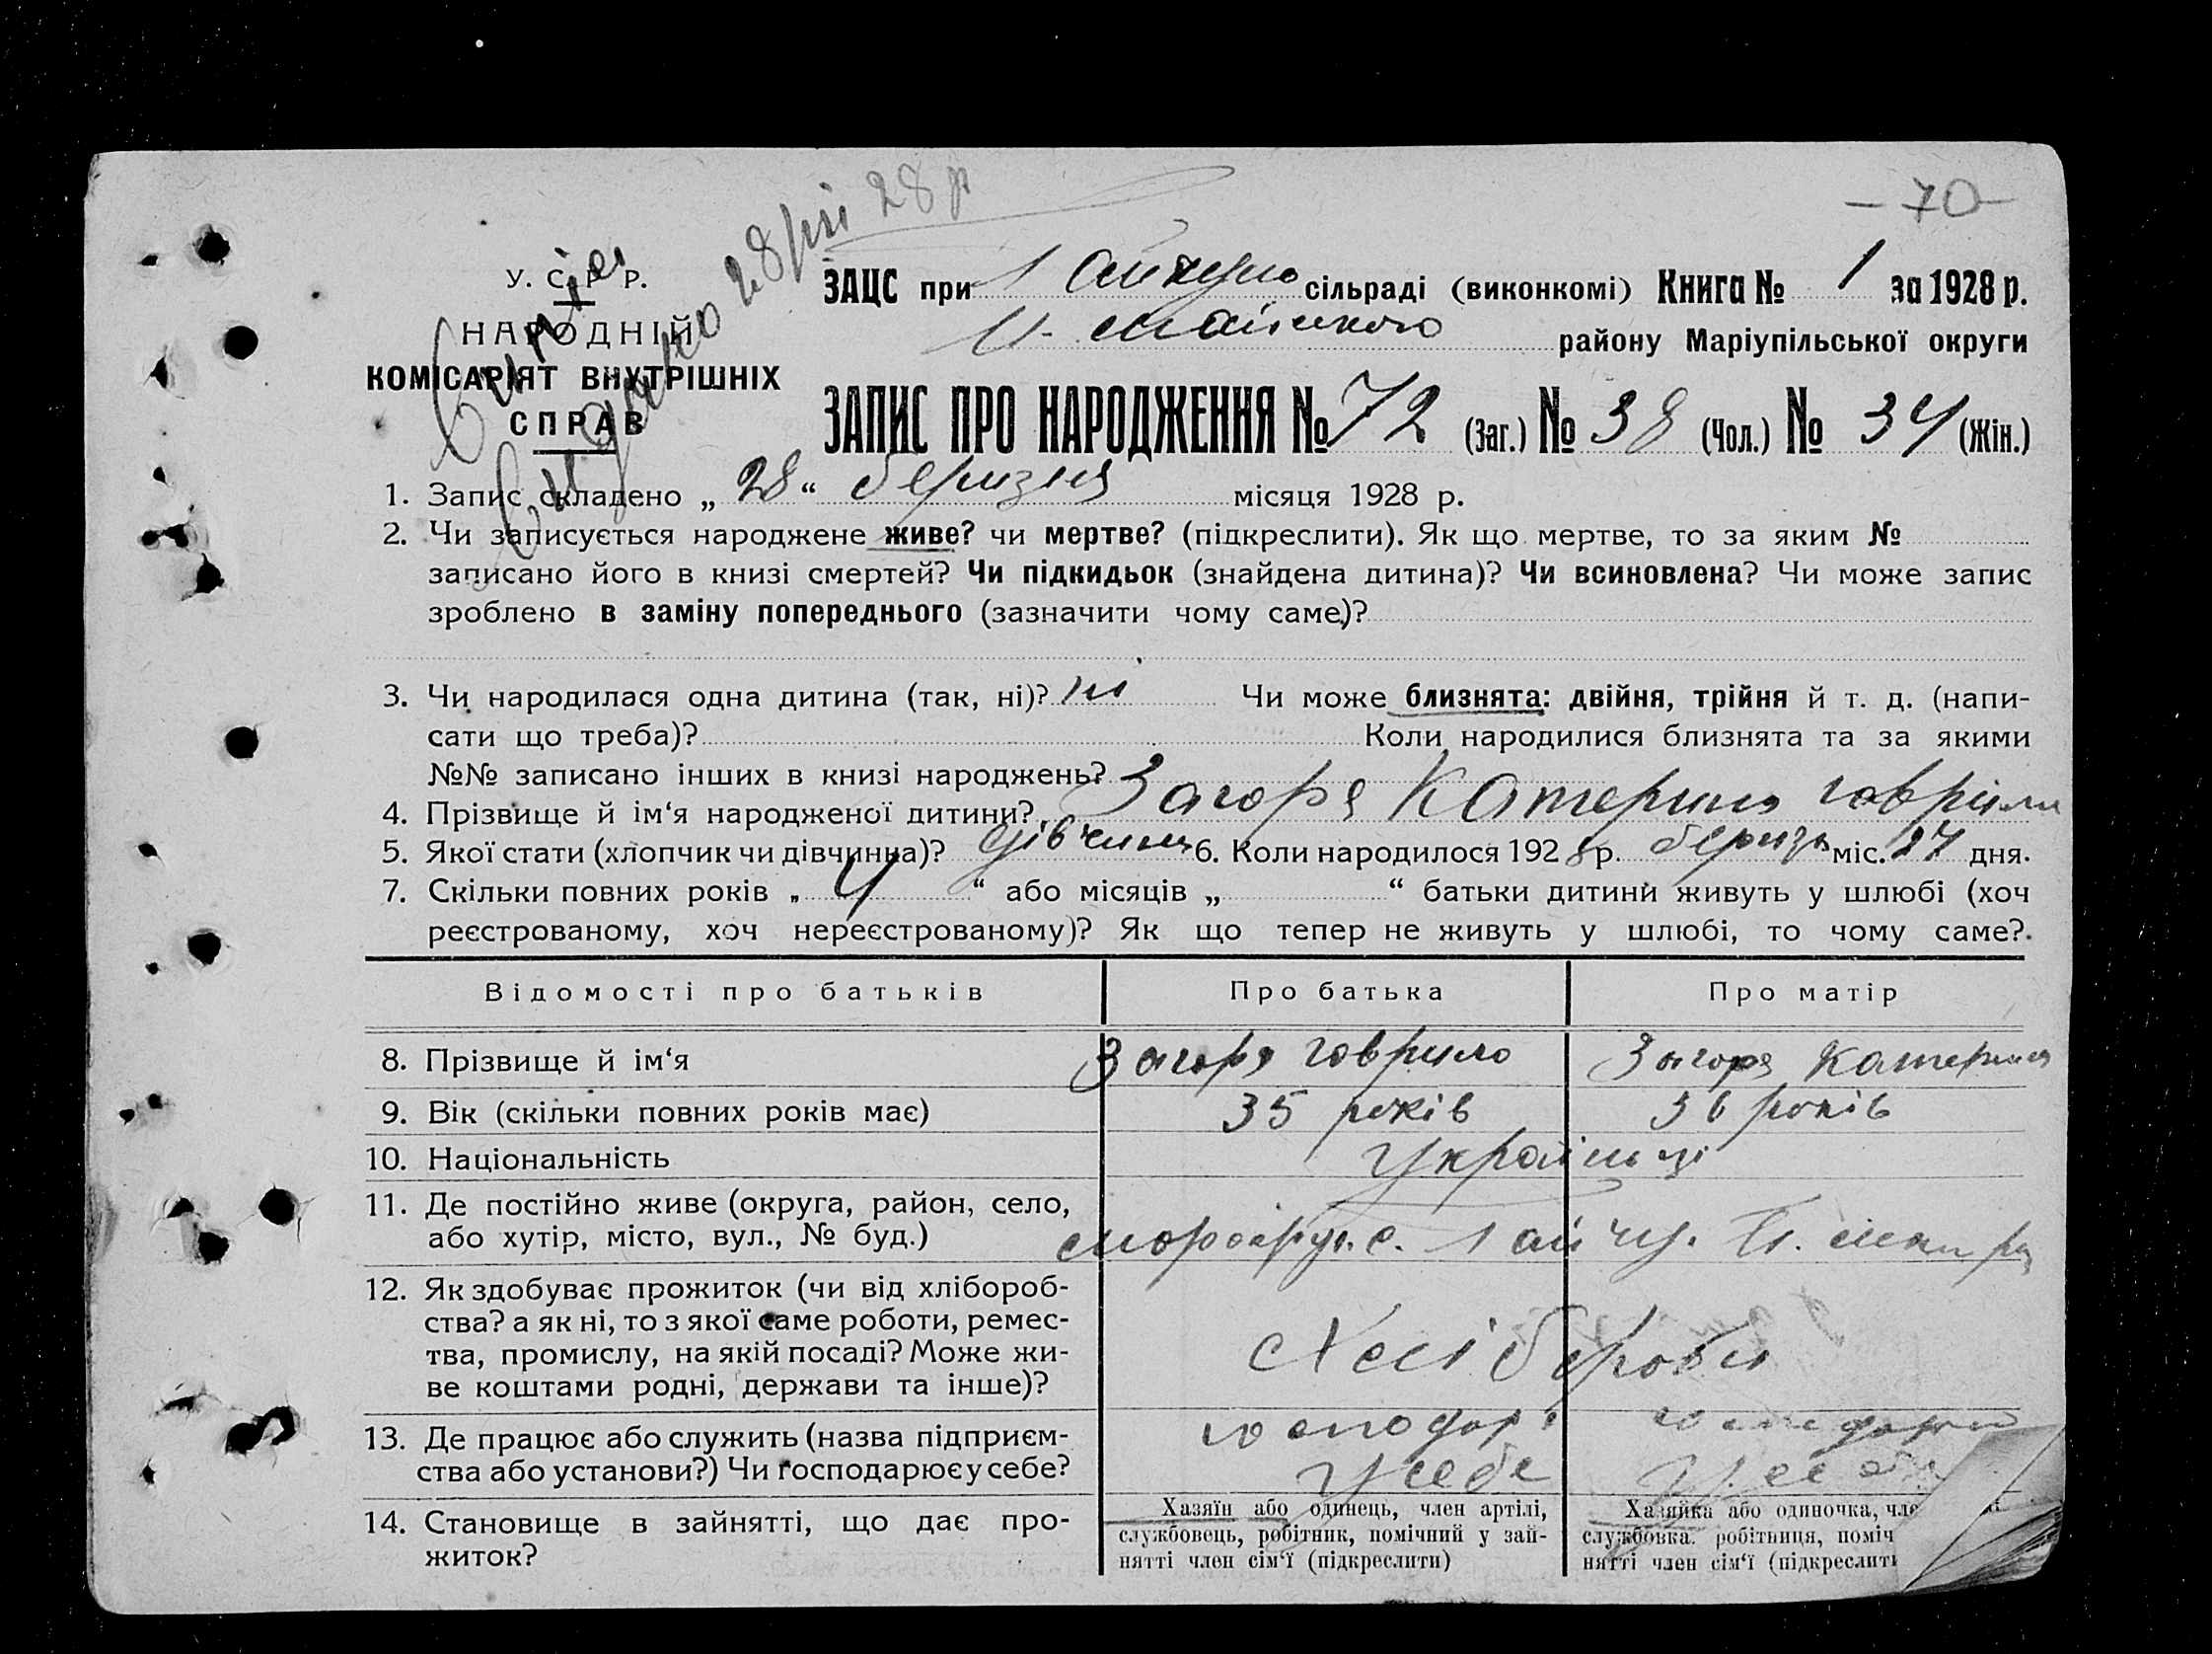 - 70 -
28/ІІІ 28 р
У. С. Р. Р.
НАРОДНІЙ
КОМІСАРІЯТ ВНУТРІШНІХ
СПРАВ
ЗАЦС при сільраді (виконкомі) Книга № 1 за 1928 р.
району Маріупільської округи
ЗАПИС ПРО НАРОДЖЕННЯ № 72 (Заг.) № 38 (Чол.) № 34 (Жін.)
1. Запис складено „ 28 “ березня місяця 1928 р.
2. Чи записується народжене живе? чи мертве? (підкреслити). Як що мертве, то за яким №
записано його в книзі смертей? Чи підкидьок (знайдена дитина)? Чи всиновлена? Чи може запис
зроблено в заміну попереднього (зазначити чому саме)?
3. Чи народилася одна дитина (так, ні)? ні Чи може близнята: двійня, трійня й т. д. (напи-
сати що треба)? Коли народилися близнята та за якими
№№ записано інших в книзі народжень?
4. Прізвище й ім‘я народженої дитини? Загоря Катерина Гаврили
5. Якої стати (хлопчик чи дівчинна)? дівчина 6. Коли народилося 1928 р. березн міс. 27 дня.
7. Скільки повних років „ 4 “ або місяців „ “ батьки дитини живуть у шлюбі (хоч
реєстрованому, хоч нереєстрованому)? Як що тепер не живуть у шлюбі, то чому саме?
Відомості про батьків Про батька Про матір
8. Прізвище й ім‘я Загоря Гаврило Загоря Катерина
9. Вік (скільки повних років має) 35 років 36 років
10. Національність Українці
11. Де постійно живе (округа, район, село,
або хутір, місто, вул., № буд.)
12. Як здобуває прожиток (чи від хлібороб-
ства? а як ні, то з якої саме роботи, ремес-
тва, промислу, на якій посаді? Може жи-
ве коштами родні, держави та інше)?
Хлібороби
13. Де працює або служить (назва підприєм-
ства або установи?) Чи господарює у себе?
господар у себе
у себе
14. Становище в зайнятті, що дає про-
житок?
Хазяїн або одинець, член артілі,
службовець, робітник, помічний у зай-
нятті член сім‘ї (підкреслити)
Хазяйка або одиночка, чле
службовка. робітниця, поміч
нятті член сім‘ї (підкреслити